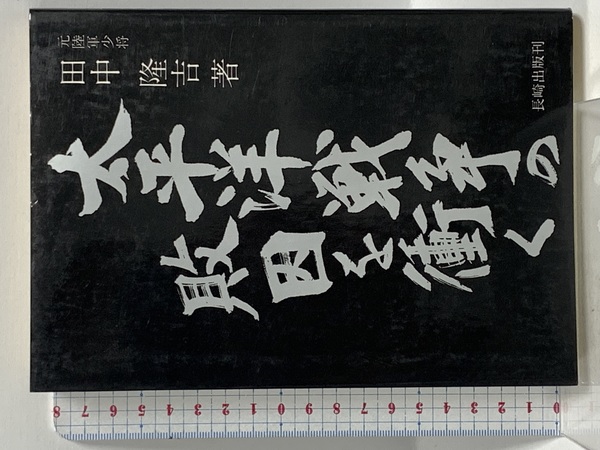 元陸軍少将
田中 隆吉 著
太平洋戦争の
敗因を衝く
長崎出版刊
8 7 6 5 4 3 2 1 0 9 8 7 6 5 4 3 2 1 0